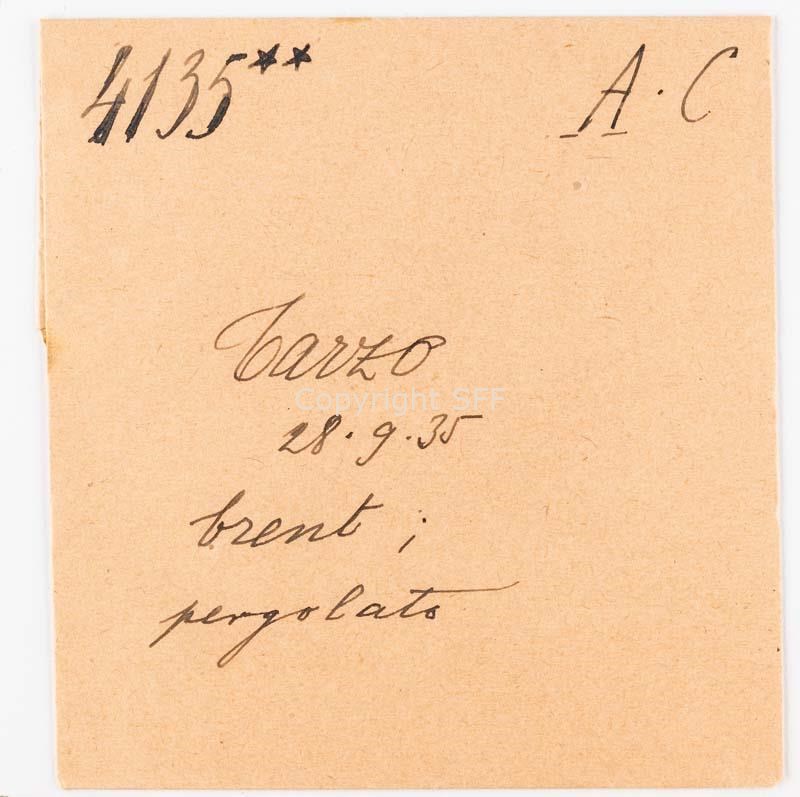 4135** A. C
Tarzo
Copyright SFF
28.9.35
brent ;
pergolato